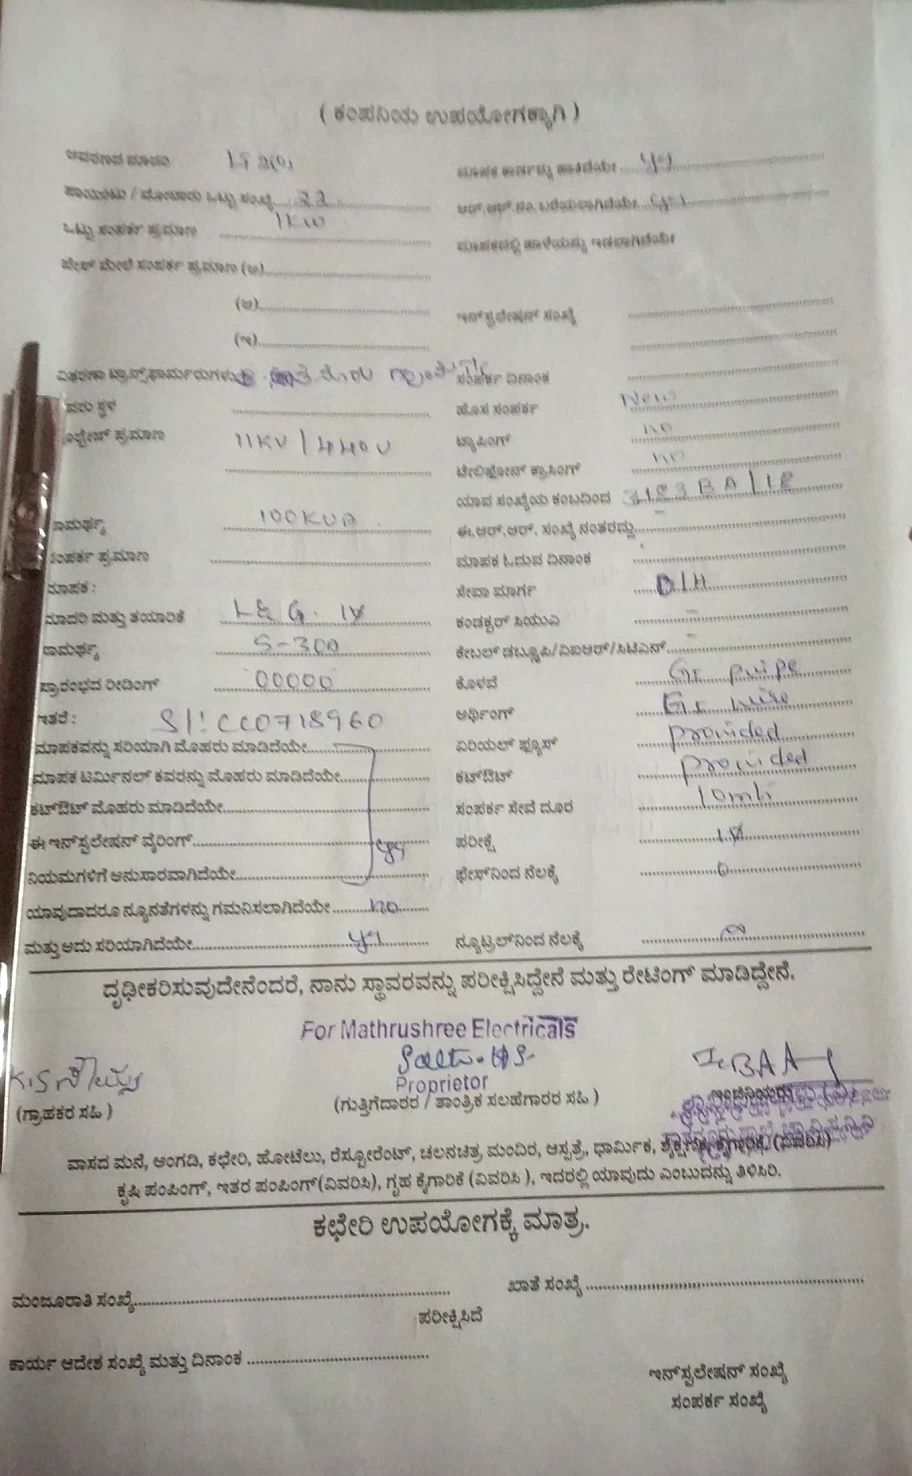 ( ಕಂಪನಿಯ ಉಪಯೋಗಕ್ಕಾಗಿ )
ಆವರಣದ ಮಾದರಿ
ಮಾಪಕ ಕಾರ್ಡನ್ನು ಹಾಕಿದೆಯೇ yes
ಪಾಯಿಂಟು / ಮೋಟಾರು ಒಟ್ಟು ಸಂಖ್ಯೆ 22
ಆರ್.ಆರ್ ನಂ. ಬರೆಯಲಾಗಿದೆಯೇ yes
ಒಟ್ಟು ಸಂಪರ್ಕ ಪ್ರಮಾಣ 1KW
ಮಾಪಕದಲ್ಲಿ ಹಾಳೆಯನ್ನು ಇಡಲಾಗಿದೆಯೇ
ಪೇಸ್ ಮೇಲೆ ಸಂಪರ್ಕ ಪ್ರಮಾಣ (ಅ)
(ಆ)
ಇನ್‌ಸ್ಟಲೇಷನ್ ಸಂಖ್ಯೆ
(ಇ)
ವಿತರಣಾ ಟ್ರಾನ್ಸ್‌ಫಾರ್ಮರುಗಳು
ಸಂಪರ್ಕ ದಿನಾಂಕ
ಹೊಸ ಸಂಪರ್ಕ New
ವೋಲ್ಟೇಜ್ ಪ್ರಮಾಣ 11KV / 440V
ಟ್ಯಾಪಿಂಗ್ no
ಟೆಲಿಫೋನ್ ಕ್ರಾಸಿಂಗ್ no
ಯಾವ ಸಂಖ್ಯೆಯ ಕಂಬದಿಂದ 3183BA/18
ಸಾಮರ್ಥ್ಯ 100KVA
ಈ.ಆರ್.ಆರ್. ಸಂಖ್ಯೆ ನಂತರದ್ದು
ಸಂಪರ್ಕ ಪ್ರಮಾಣ
ಮಾಪಕ ಓದುವ ದಿನಾಂಕ
ಮಾಪಕ :
ಸೇವಾ ಮಾರ್ಗ O/H
ಮಾದರಿ ಮತ್ತು ತಯಾರಿಕೆ L&G. 1ϕ
ಕಂಡಕ್ಟರ್ ಸಿಯುಎ -
ಸಾಮರ್ಥ್ಯ 5-30A
ಕೇಬಲ್ ಡಬ್ಲ್ಯೂಪಿ/ವಿಐಆರ್/ಸಿಟಿಎಸ್ -
ಪ್ರಾರಂಭದ ರೀಡಿಂಗ್ 00000
ಕೊಳವೆ GI puipe
ಇತರೆ : Sl: CC0718960
ಅರ್ಥಿಂಗ್ GI wire
ಮಾಪಕವನ್ನು ಸರಿಯಾಗಿ ಮೊಹರು ಮಾಡಿದೆಯೇ
ಏರಿಯಲ್ ಫ್ಯೂಸ್ provided
ಮಾಪಕ ಟರ್ಮಿನಲ್ ಕವರನ್ನು ಮೊಹರು ಮಾಡಿದೆಯೇ
ಕಟ್‌ಔಟ್ provided
ಕಟ್‌ಔಟ್ ಮೊಹರು ಮಾಡಿದೆಯೇ
ಸಂಪರ್ಕ ಸೇವೆ ದೂರ 10mts
ಈ ಇನ್‌ಸ್ಟಲೇಷನ್ ವೈರಿಂಗ್ yes
ಪರೀಕ್ಷೆ 1ϕ
ನಿಯಮಗಳಿಗೆ ಅನುಸಾರವಾಗಿದೆಯೇ
ಫೇಸ್‌ನಿಂದ ನೆಲಕ್ಕೆ
ಯಾವುದಾದರೂ ನ್ಯೂನತೆಗಳನ್ನು ಗಮನಿಸಲಾಗಿದೆಯೇ no
ಮತ್ತು ಅದು ಸರಿಯಾಗಿದೆಯೇ yes
ನ್ಯೂಟ್ರಲ್‌ನಿಂದ ನೆಲಕ್ಕೆ
ದೃಢೀಕರಿಸುವುದೇನೆಂದರೆ, ನಾನು ಸ್ಥಾವರವನ್ನು ಪರೀಕ್ಷಿಸಿದ್ದೇನೆ ಮತ್ತು ರೇಟಿಂಗ್ ಮಾಡಿದ್ದೇನೆ.
For Mathrushree Electricals
Proprietor
(ಗ್ರಾಹಕರ ಸಹಿ )
(ಗುತ್ತಿಗೆದಾರರ / ತಾಂತ್ರಿಕ ಸಲಹೆಗಾರರ ಸಹಿ )
ವಾಸದ ಮನೆ, ಅಂಗಡಿ, ಕಛೇರಿ, ಹೋಟೆಲು, ರೆಸ್ಟೋರೆಂಟ್, ಚಲನಚಿತ್ರ ಮಂದಿರ, ಆಸ್ಪತ್ರೆ, ಧಾರ್ಮಿಕ, ಶೈಕ್ಷಣಿಕ, ಕೈಗಾರಿಕೆ, (ವಿವರಿಸಿ)
ಕೃಷಿ ಪಂಪಿಂಗ್, ಇತರ ಪಂಪಿಂಗ್(ವಿವರಿಸಿ), ಗೃಹ ಕೈಗಾರಿಕೆ (ವಿವರಿಸಿ ), ಇದರಲ್ಲಿ ಯಾವುದು ಎಂಬುದನ್ನು ತಿಳಿಸಿರಿ.
ಕಛೇರಿ ಉಪಯೋಗಕ್ಕೆ ಮಾತ್ರ.
ಮಂಜೂರಾತಿ ಸಂಖ್ಯೆ
ಖಾತೆ ಸಂಖ್ಯೆ
ಪರೀಕ್ಷಿಸಿದೆ
ಕಾರ್ಯ ಆದೇಶ ಸಂಖ್ಯೆ ಮತ್ತು ದಿನಾಂಕ
ಇನ್‌ಸ್ಟಲೇಷನ್ ಸಂಖ್ಯೆ
ಸಂಪರ್ಕ ಸಂಖ್ಯೆ